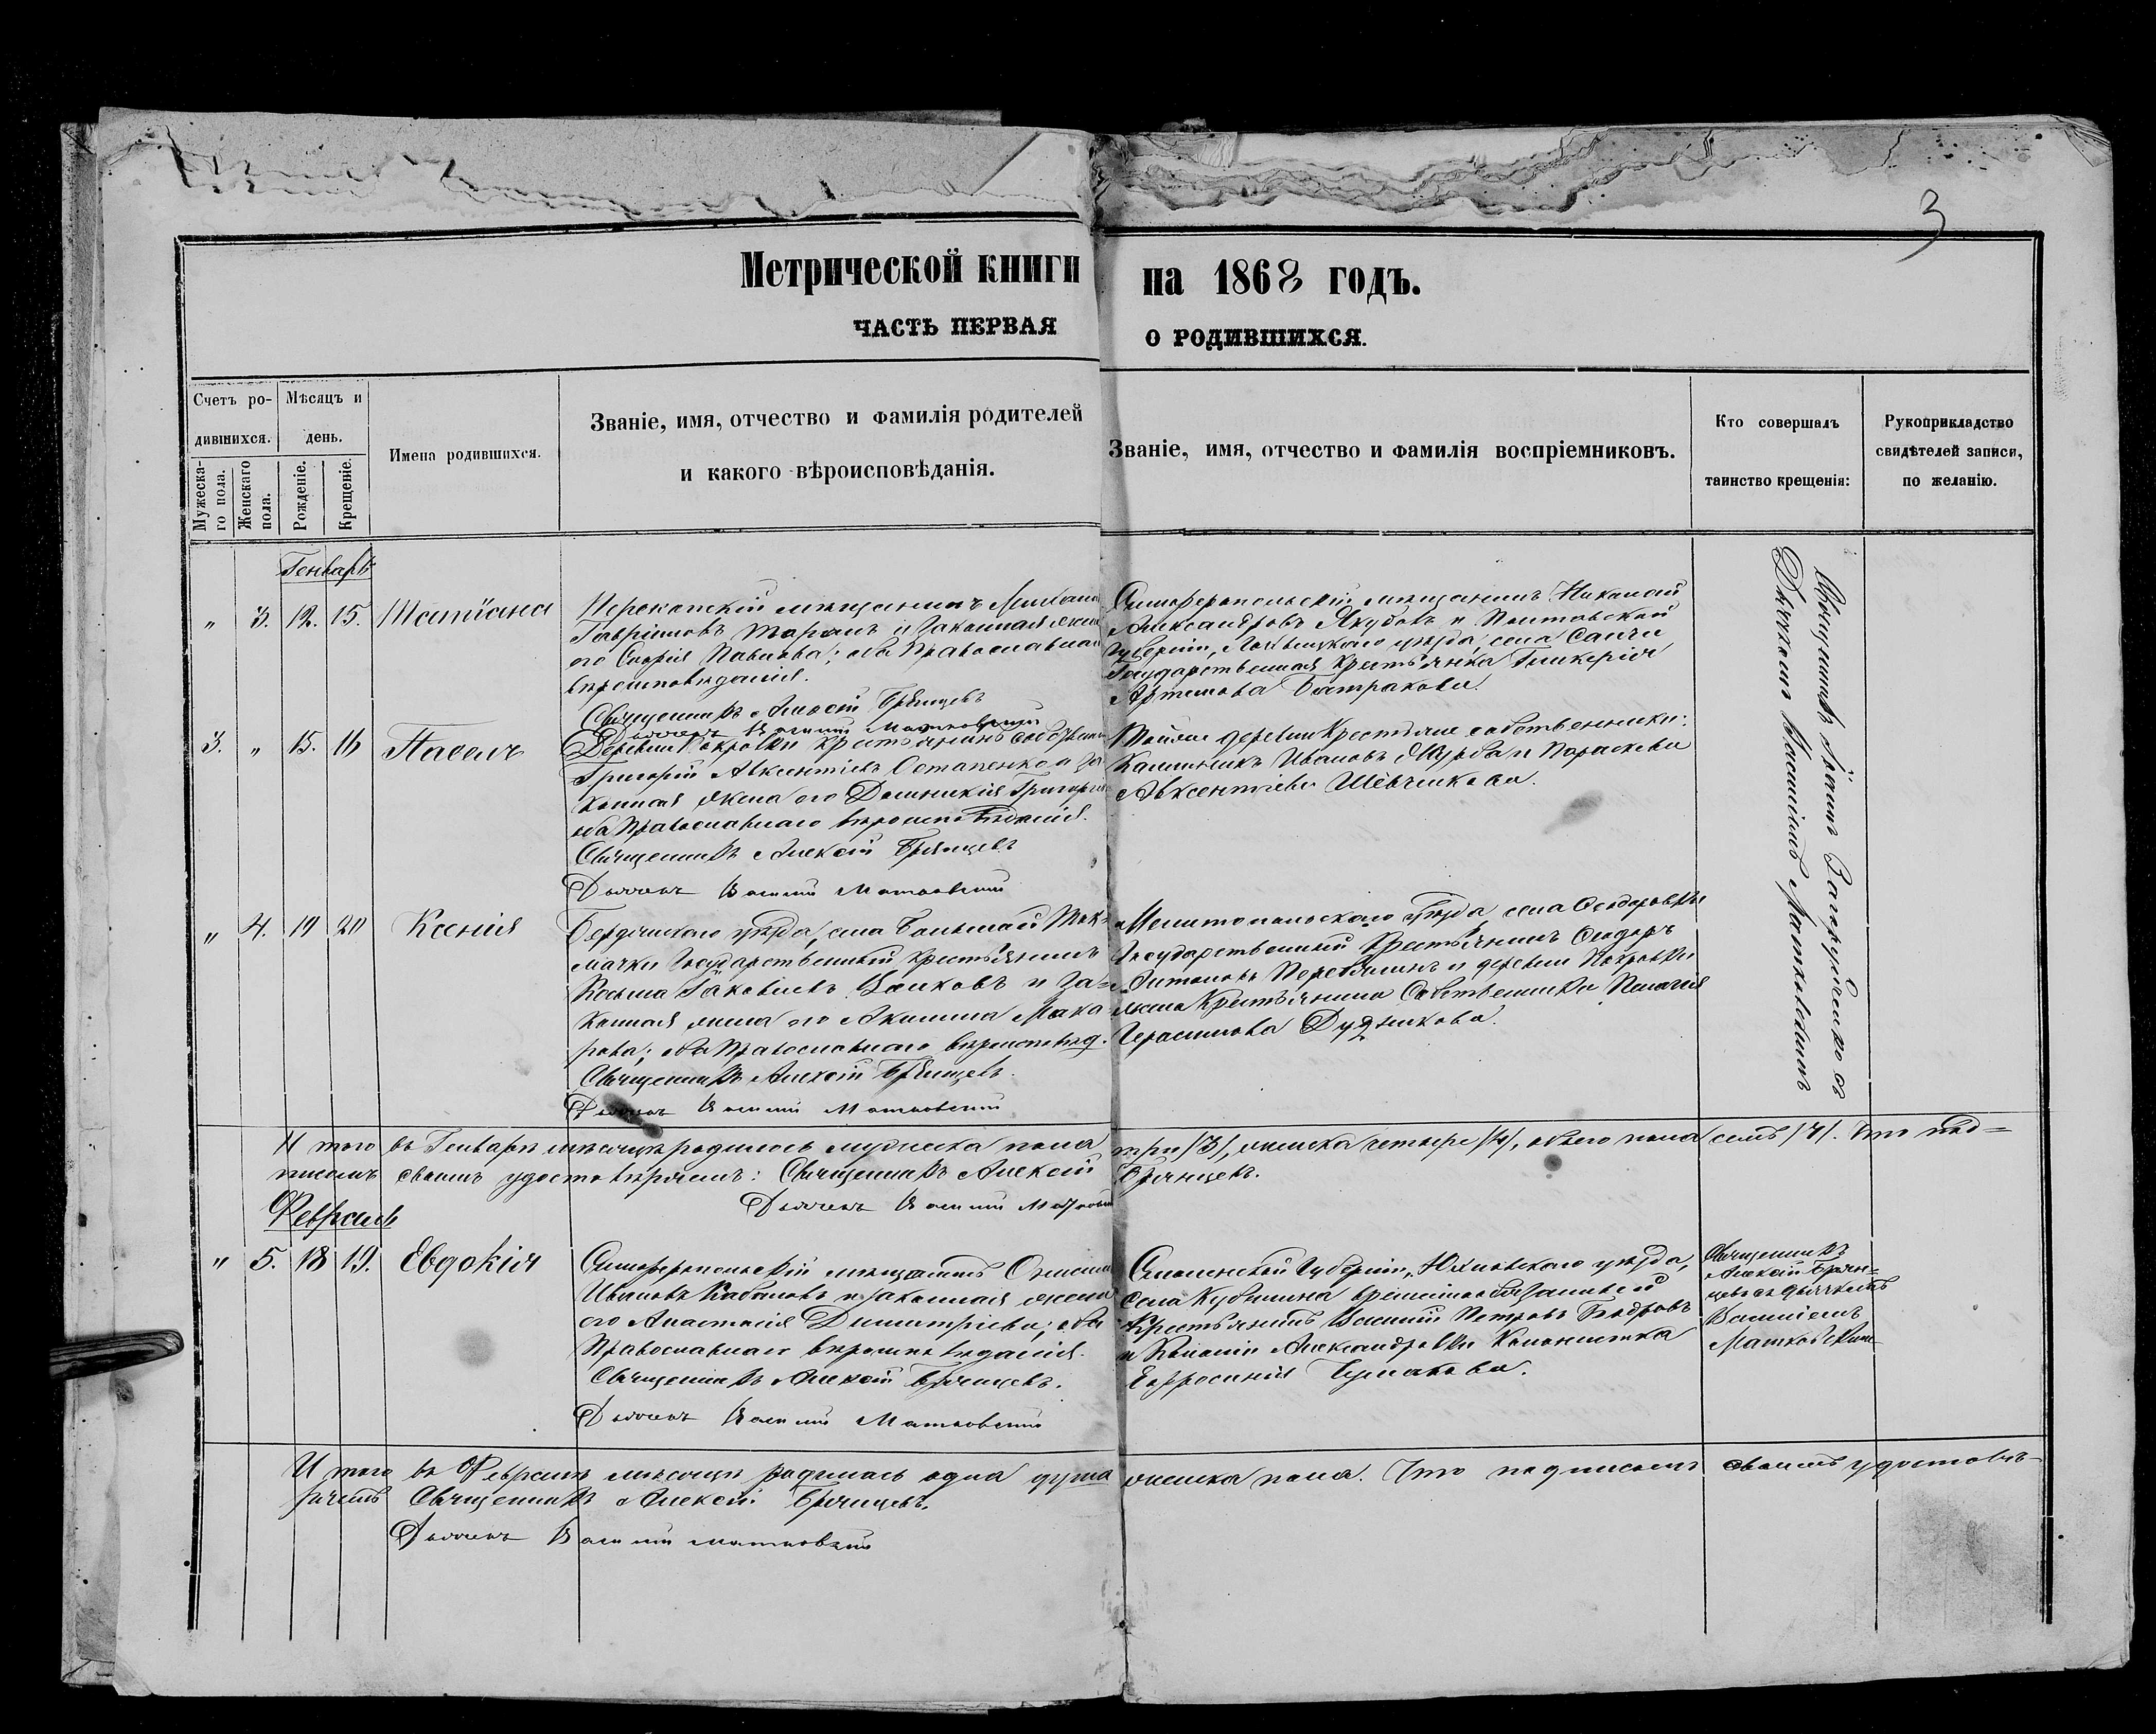 3
Метрической книги на 1868 годъ.
ЧАСТЬ ПЕРВАЯ О РОДИВШИХСЯ.
Счетъ ро-
дившихся.
Мужеска-
го пола.
Женскаго
пола.
Мѣсяцъ и
день.
Рожденіе.
Крещеніе.
Имена родившихся.
Званіе, имя, отчество и фамилія родителей
и какого вѣроисповѣданія.
Званіе, имя, отчество и фамилія воспріемниковъ.
Кто совершалъ
таинство крещенія:
Рукоприкладство
свидѣтелей записи,
по желанію.
Генварь
" 3. 12. 15. Татіана
Перекопскій мѣщанинъ Михаилъ
Гавріиловъ Таранъ и законная жена
его Софія Павлова; оба православнаго
вѣроисповѣданія.
Священникъ Алексій Брянцевъ
Дьячекъ Василій Матковскій
Симферопольскій мѣщанинъ Николай
Александровъ Якубовъ и Полтавской
Губерніи, Лохвицкаго уѣзда, села
Государственная Крестьянка Гликерія
Артемова Батракова.
3. " 15. 16 Павелъ
Деревни Покровки крестьянинъ собственникъ
Григорій Авксентіевъ Остапенко и за-
конная жена его Домникія Григорьева
оба Православнаго вѣроисповѣданія.
Священникъ Алексій Брянцевъ
Дьячекъ Василій Матковскій
Тойже деревни Крестьяне собственники:
Каллиникъ Ивановъ и Параскева
Авксентіева Шевченкова.
" 4. 19 20 Ксенія
Бердянскаго уѣзда, села Большой Ток-
мачки Государственный крестьянинъ
Косьма Іаковлевъ Волковъ и за-
конная жена его Акилина Мака-
рова; оба Православнаго вѣроисповѣд.
Священникъ Алексій Брянцевъ.
Дьячекъ Василій Матковскій
Мелитопольскаго уѣзда, села Ѳеодоровки
Государственный Крестьянинъ Ѳеодоръ
Антоновъ и деревни Покровки
жена Крестьянина Собственника Пелагія
Герасимова
Священникъ Іоаннъ съ
Дьячкомъ Василіемъ Матковскимъ
И того въ Генварѣ мѣсяцѣ родилось мужеска пола три /3/, женска четыре /4/, обоего пола семь /7/. Что под=
писомъ своимъ удостовѣряемъ: Священникъ Алексій Брянцевъ.
Дьячекъ Василій Матковскій
Февраль
" 5. 18 19. Евдокія
Симферопольскій мѣщанинъ
Ивановъ Кабановъ и законная жена
его Анастасія Димитріева; оба
Православнаго вѣроисповѣданія.
Священникъ Алексій Брянцевъ.
Дьячекъ Василій Матковскій
Смоленской Губерніи, Юхновскаго уѣзда,
Села временнообязанный
Крестьянинъ Василій Петровъ
и Колоніи Александровки Колонистка
Евфросинія Чумакова.
Священникъ
Алексій Брян=
цевъ съ дьячкомъ
Василіемъ
Матковским
И того въ Февралѣ мѣсяцѣ родилась одна душа женска пола. Что подписомъ своимъ удостовѣ-
ряемъ Священникъ Алексій Брянцевъ.
Дьячекъ Василій Матковскій